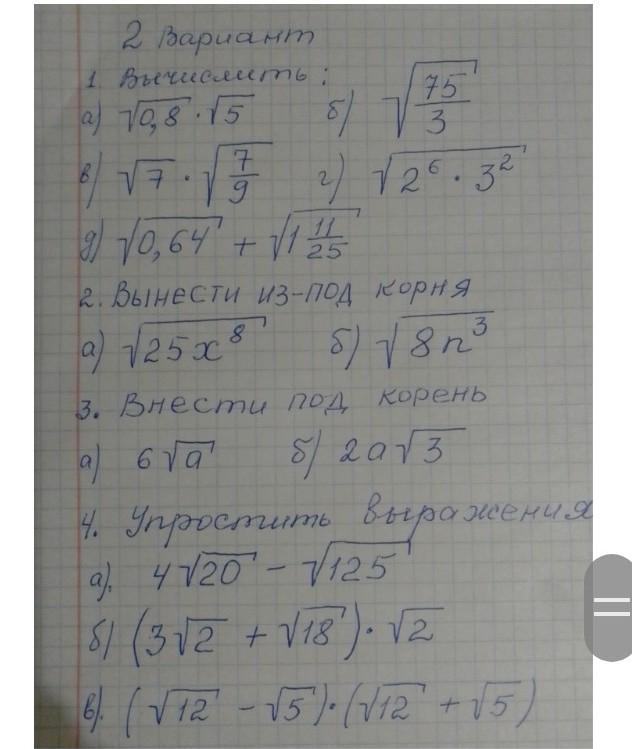 2 Вариант
1. Вычислить:
а) √0,8 · √5 б) √(75/3)
в) √7 · √(7/9) г) √(2⁶ · 3²)
д) √0,64 + √(1 11/25)
2. Вынести из-под корня
а) √(25x⁸) б) √(8n³)
3. Внести под корень
а) 6√a б) 2a√3
4. Упростить выражения
а). 4√20 - √125
б) (3√2 + √18) · √2
в). (√12 - √5) · (√12 + √5)